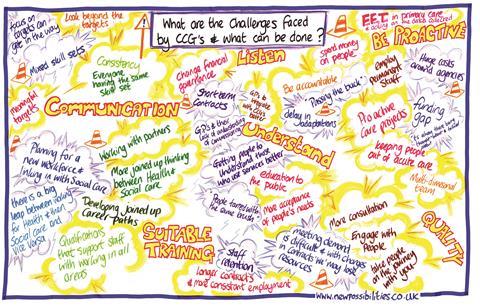 What are the Challenges faced
by CCG's & what can be done?
focus on
targets can
get in the way
Look beyond the
targets
Mixed skill sets
Consistency
Everyone
having the same
skill set
Meaningful
targets
COMMUNICATION
Change financial
governance
Short term
Contracts
Listen
spend money
on people
EET in primary care
BE PROACTIVE
Be accountable
"Passing the buck"
delay in
adaptations
employ
permanent
staff
Huge costs
around agencies
funding
gap
Pro active
care projects
keeping people
out of acute care
Multi-dimensional
team
Understand
Getting people to
understand how
to use services better
education to
the public
more acceptance
of people's needs
People tarred with
the same brush
Planning for a
new workforce &
linking in with Social Care
there is a big
leap between working
for Health & then
Social care and
vice versa
Working with partners
More joined up thinking
between Health &
Social care
Developing joined up
Career paths
Qualifications
that support staff
with working in all
areas
SUITABLE
TRAINING
Staff
retention
longer contracts
& more consistent employment
meeting demand
is difficult & with changes
in contracts we may lose
resources
More consultation
Engage with
People
take people
on the journey
with you
QUALITY
www.newpossibilities.co.uk